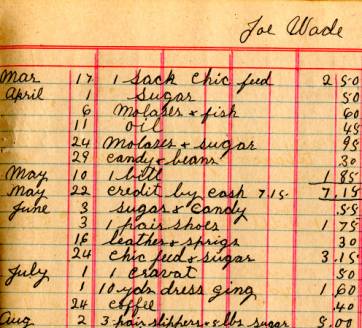 Joe Wade
Mar 17 1 sack chic feed 2 50
April 1 Sugar 50
6 Molases & fish 60
11 oil 45
24 Molases & sugar 95
29 candy & beans 30
May 10 1 bill 1 85
May 22 credit by cash 7.15 7.15
June 3 sugar & candy .55
3 1 pair shoes 1 75
16 leather & sprigs 30
24 chic feed & sugar 3.15
July 1 1 cravat .50
1 10 yds dress ging 1 60
24 coffee .40
Aug 2 3 pair slippers & lbs sugar